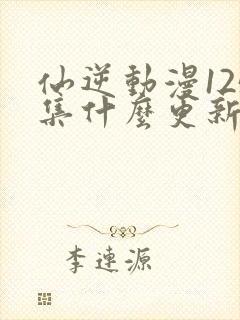 仙逆動漫12
集什麼更新
李連源